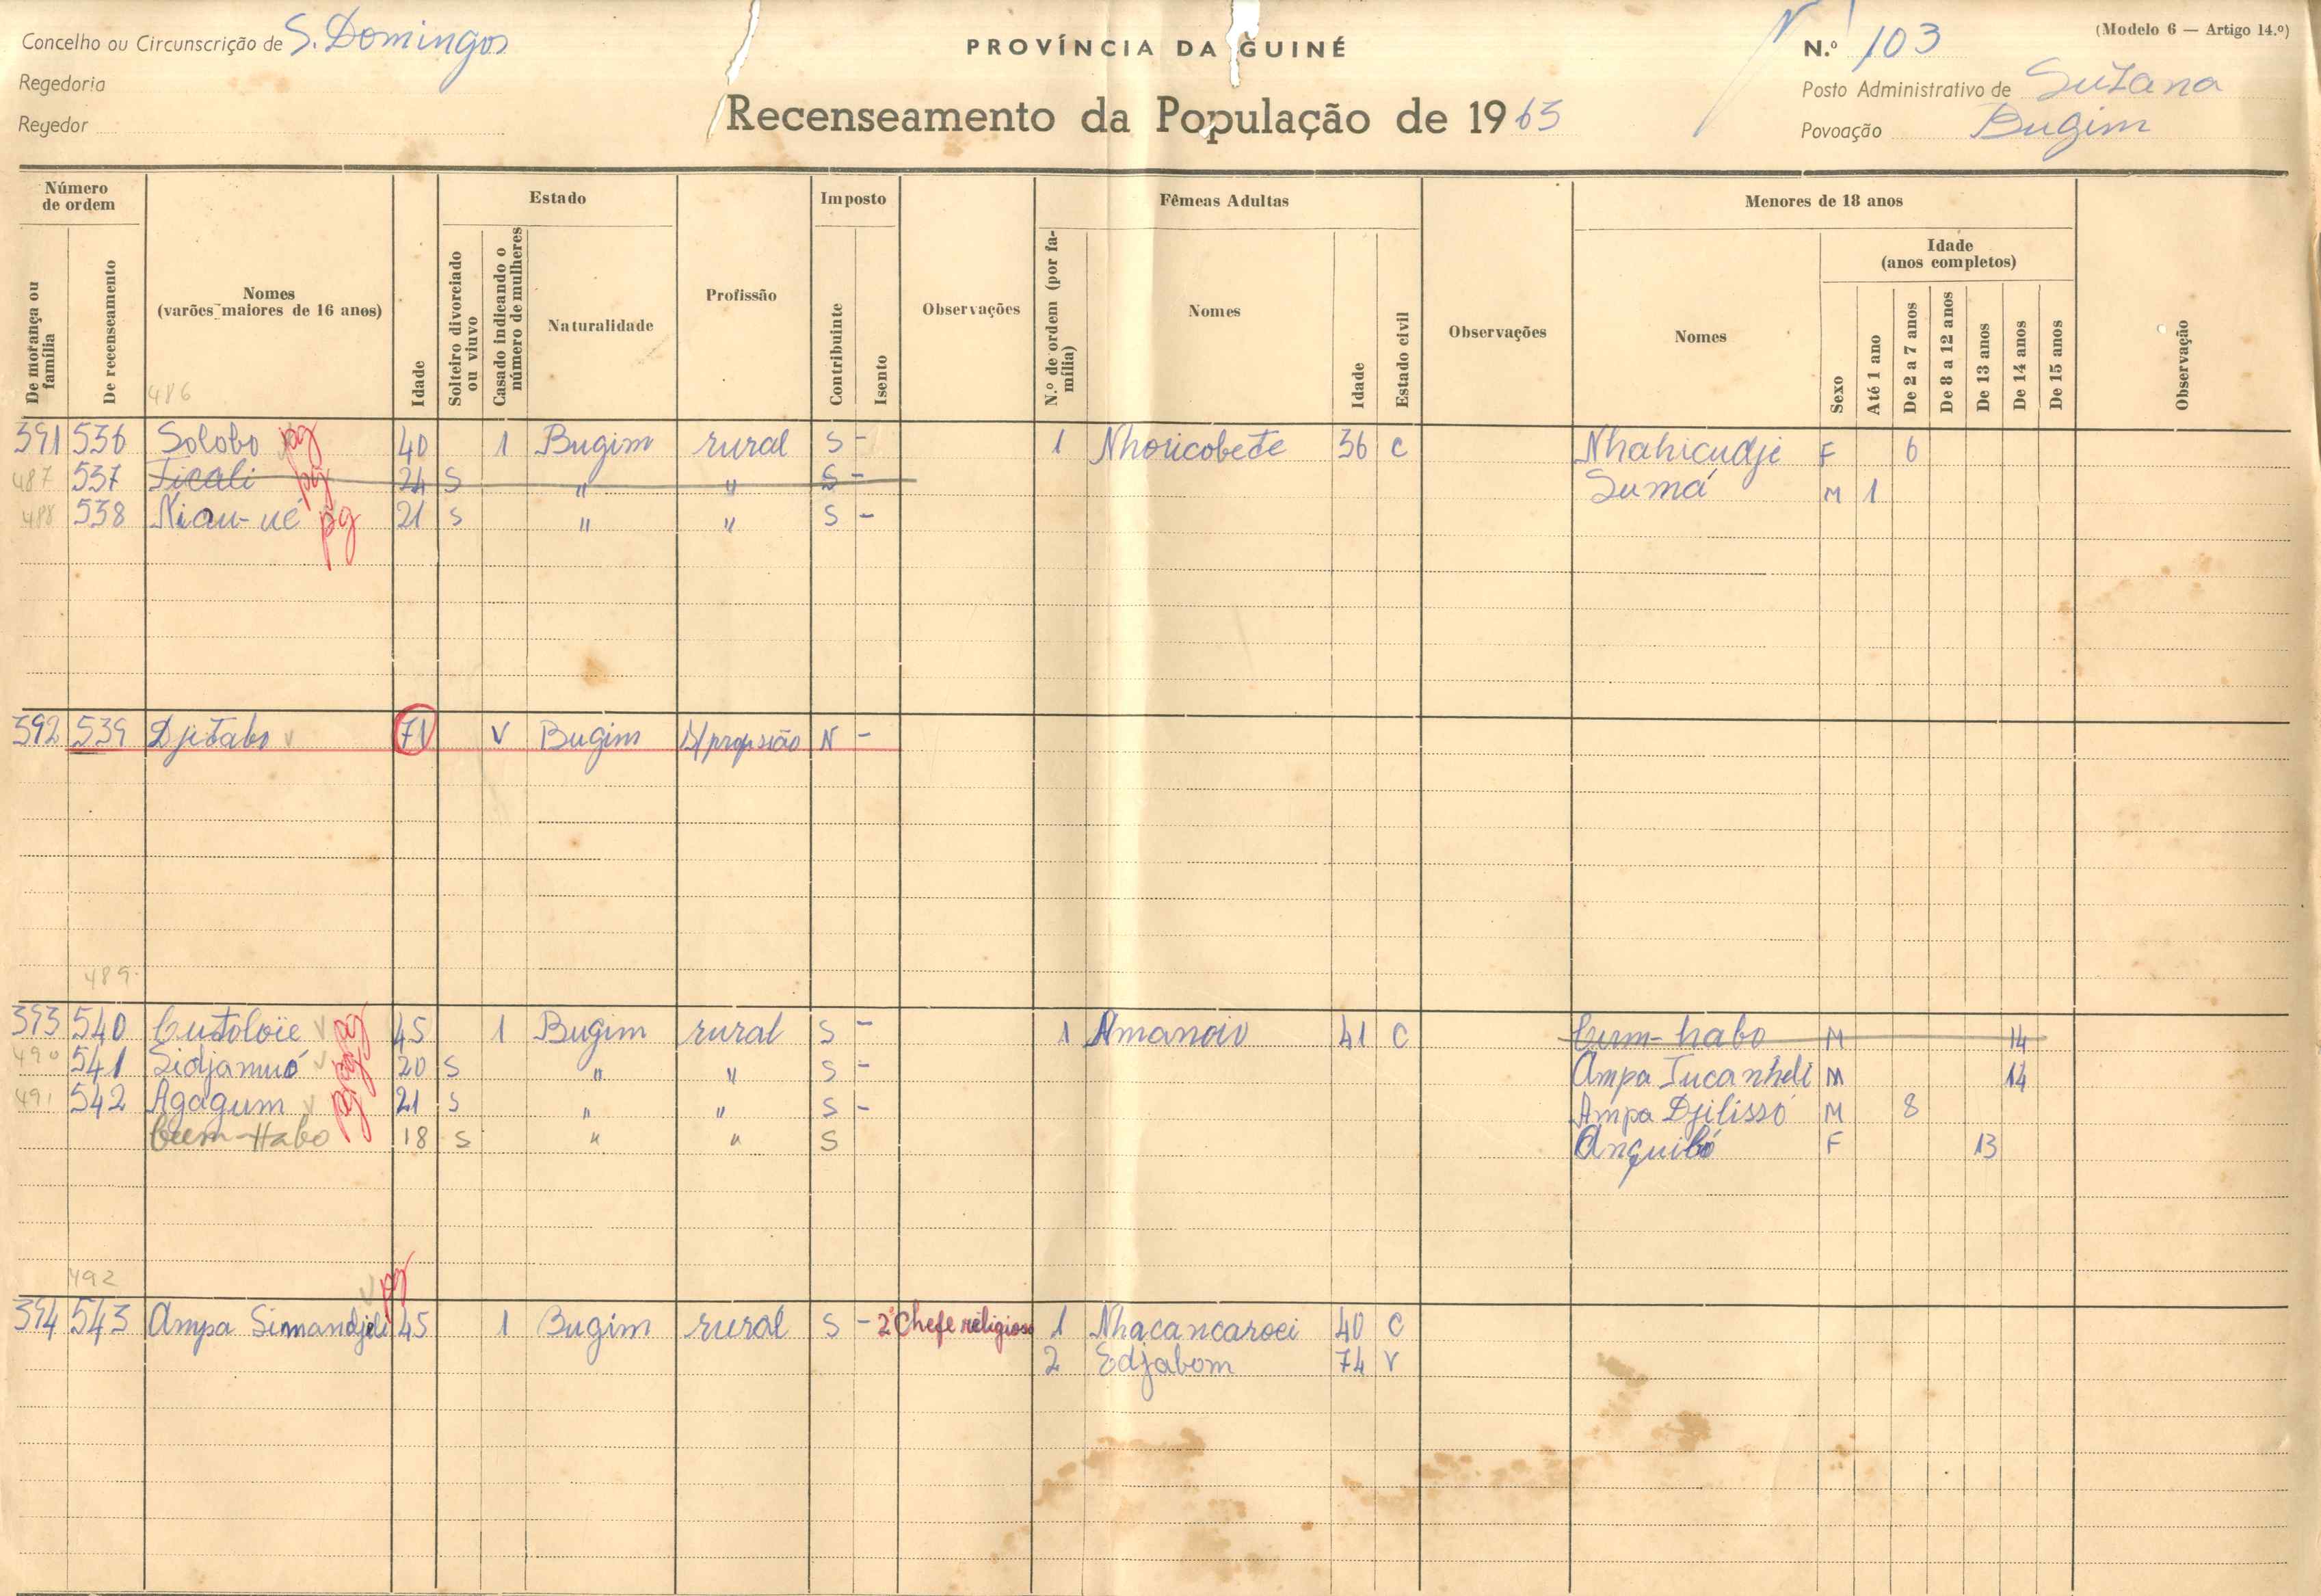 Concelho ou Circunscrição de S. Domingos
Regedoria
Regedor
PROVÍNCIA DA GUINÉ
Recenseamento da População de 1963
(Modelo 6 — Artigo 14.º)
N.º 103
Posto Administrativo de Suzana
Povoação Bugim
Número de ordem
De morança ou família
De recenseamento
Nomes
(varões maiores de 16 anos)
Idade
Estado
Solteiro divorciado ou viuvo
Casado indicando o número de mulheres
Naturalidade
Profissão
Imposto
Contribuinte
Isento
Observações
Fêmeas Adultas
N.º de ordem (por família)
Nomes
Idade
Estado civil
Observações
Menores de 18 anos
Nomes
Sexo
Idade
(anos completos)
Até 1 ano
De 2 a 7 anos
De 8 a 12 anos
De 13 anos
De 14 anos
De 15 anos
Observação
486
391 536 Solobo pg 40 1 Bugim rural S - 1 Nhoricobete 36 C Nhahicudje F 6
487 537 Ficali pg 24 S " " S - Sumá M 1
488 538 Niau-ué pg 21 S " " S -
392 539 Djitabo V 71 V Bugim N -
489
393 540 Cutoloïe V pg 45 1 Bugim rural S - 1 Amanoiv 41 C Cum-habo M 14
490 541 Sidjamuó V pg 20 S " " S - Ampa Tucanheli M 14
491 542 Agagum V pg 21 S " " S - Ampa Djilissó M 8
Cum-Habo 18 S " " S Anquibó F 13
492 V pg
394 543 Ampa Simandjeli 45 1 Bugim rural S - 2º Chefe religioso 1 Nhacancaroei 40 C
2 Edjabom 74 V